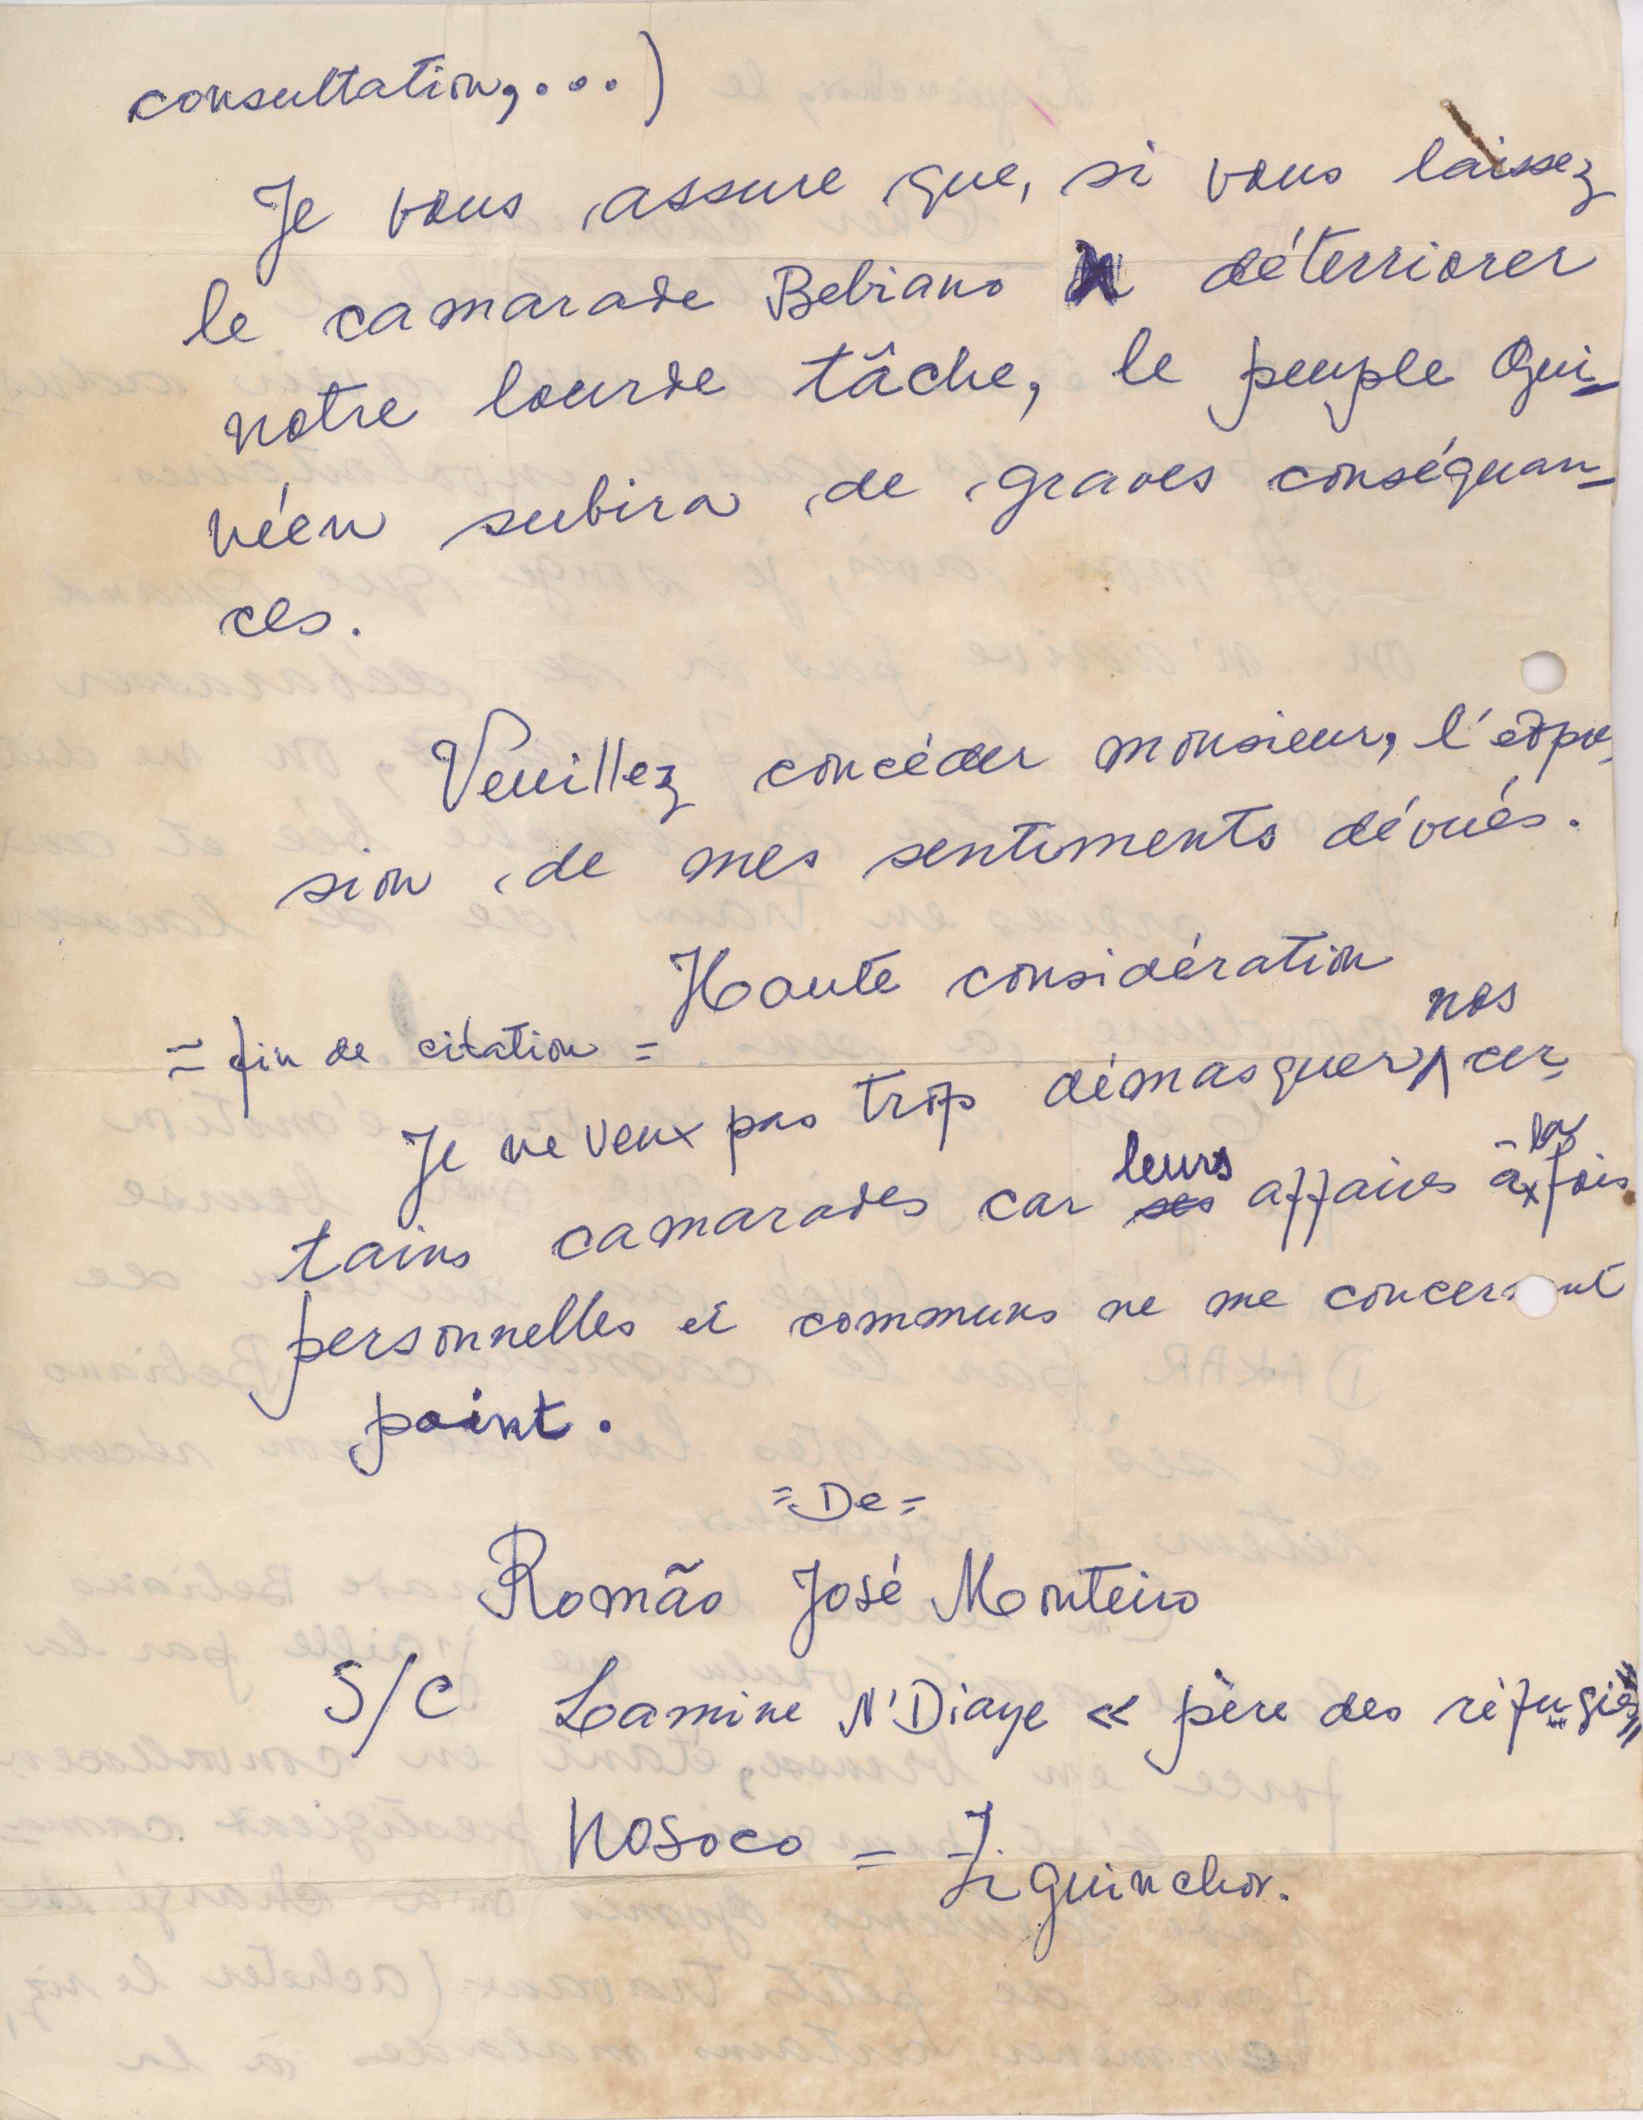 consultation,...)
Je vous assure que, si vous laissez
le camarade Bebiano déterriorer
notre lourde tâche, le peuple Gui-
néen subira de graves conséquan-
ces.
Veuillez concéder monsieur, l'expo-
sion de mes sentiments dévués.
Haute considération
= fin de citation =
Je ne veux pas trop démasquer nos cer-
tains camarades car leurs affaires à la fois
personnelles et communs ne me concernent
point.
=De=
Romão José Monteiro
S/C Lamine N'Diaye « père des réfugiés »
NOSOCO = Ziguinchor.